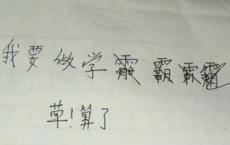 我要做学霸霸霸
草！算了